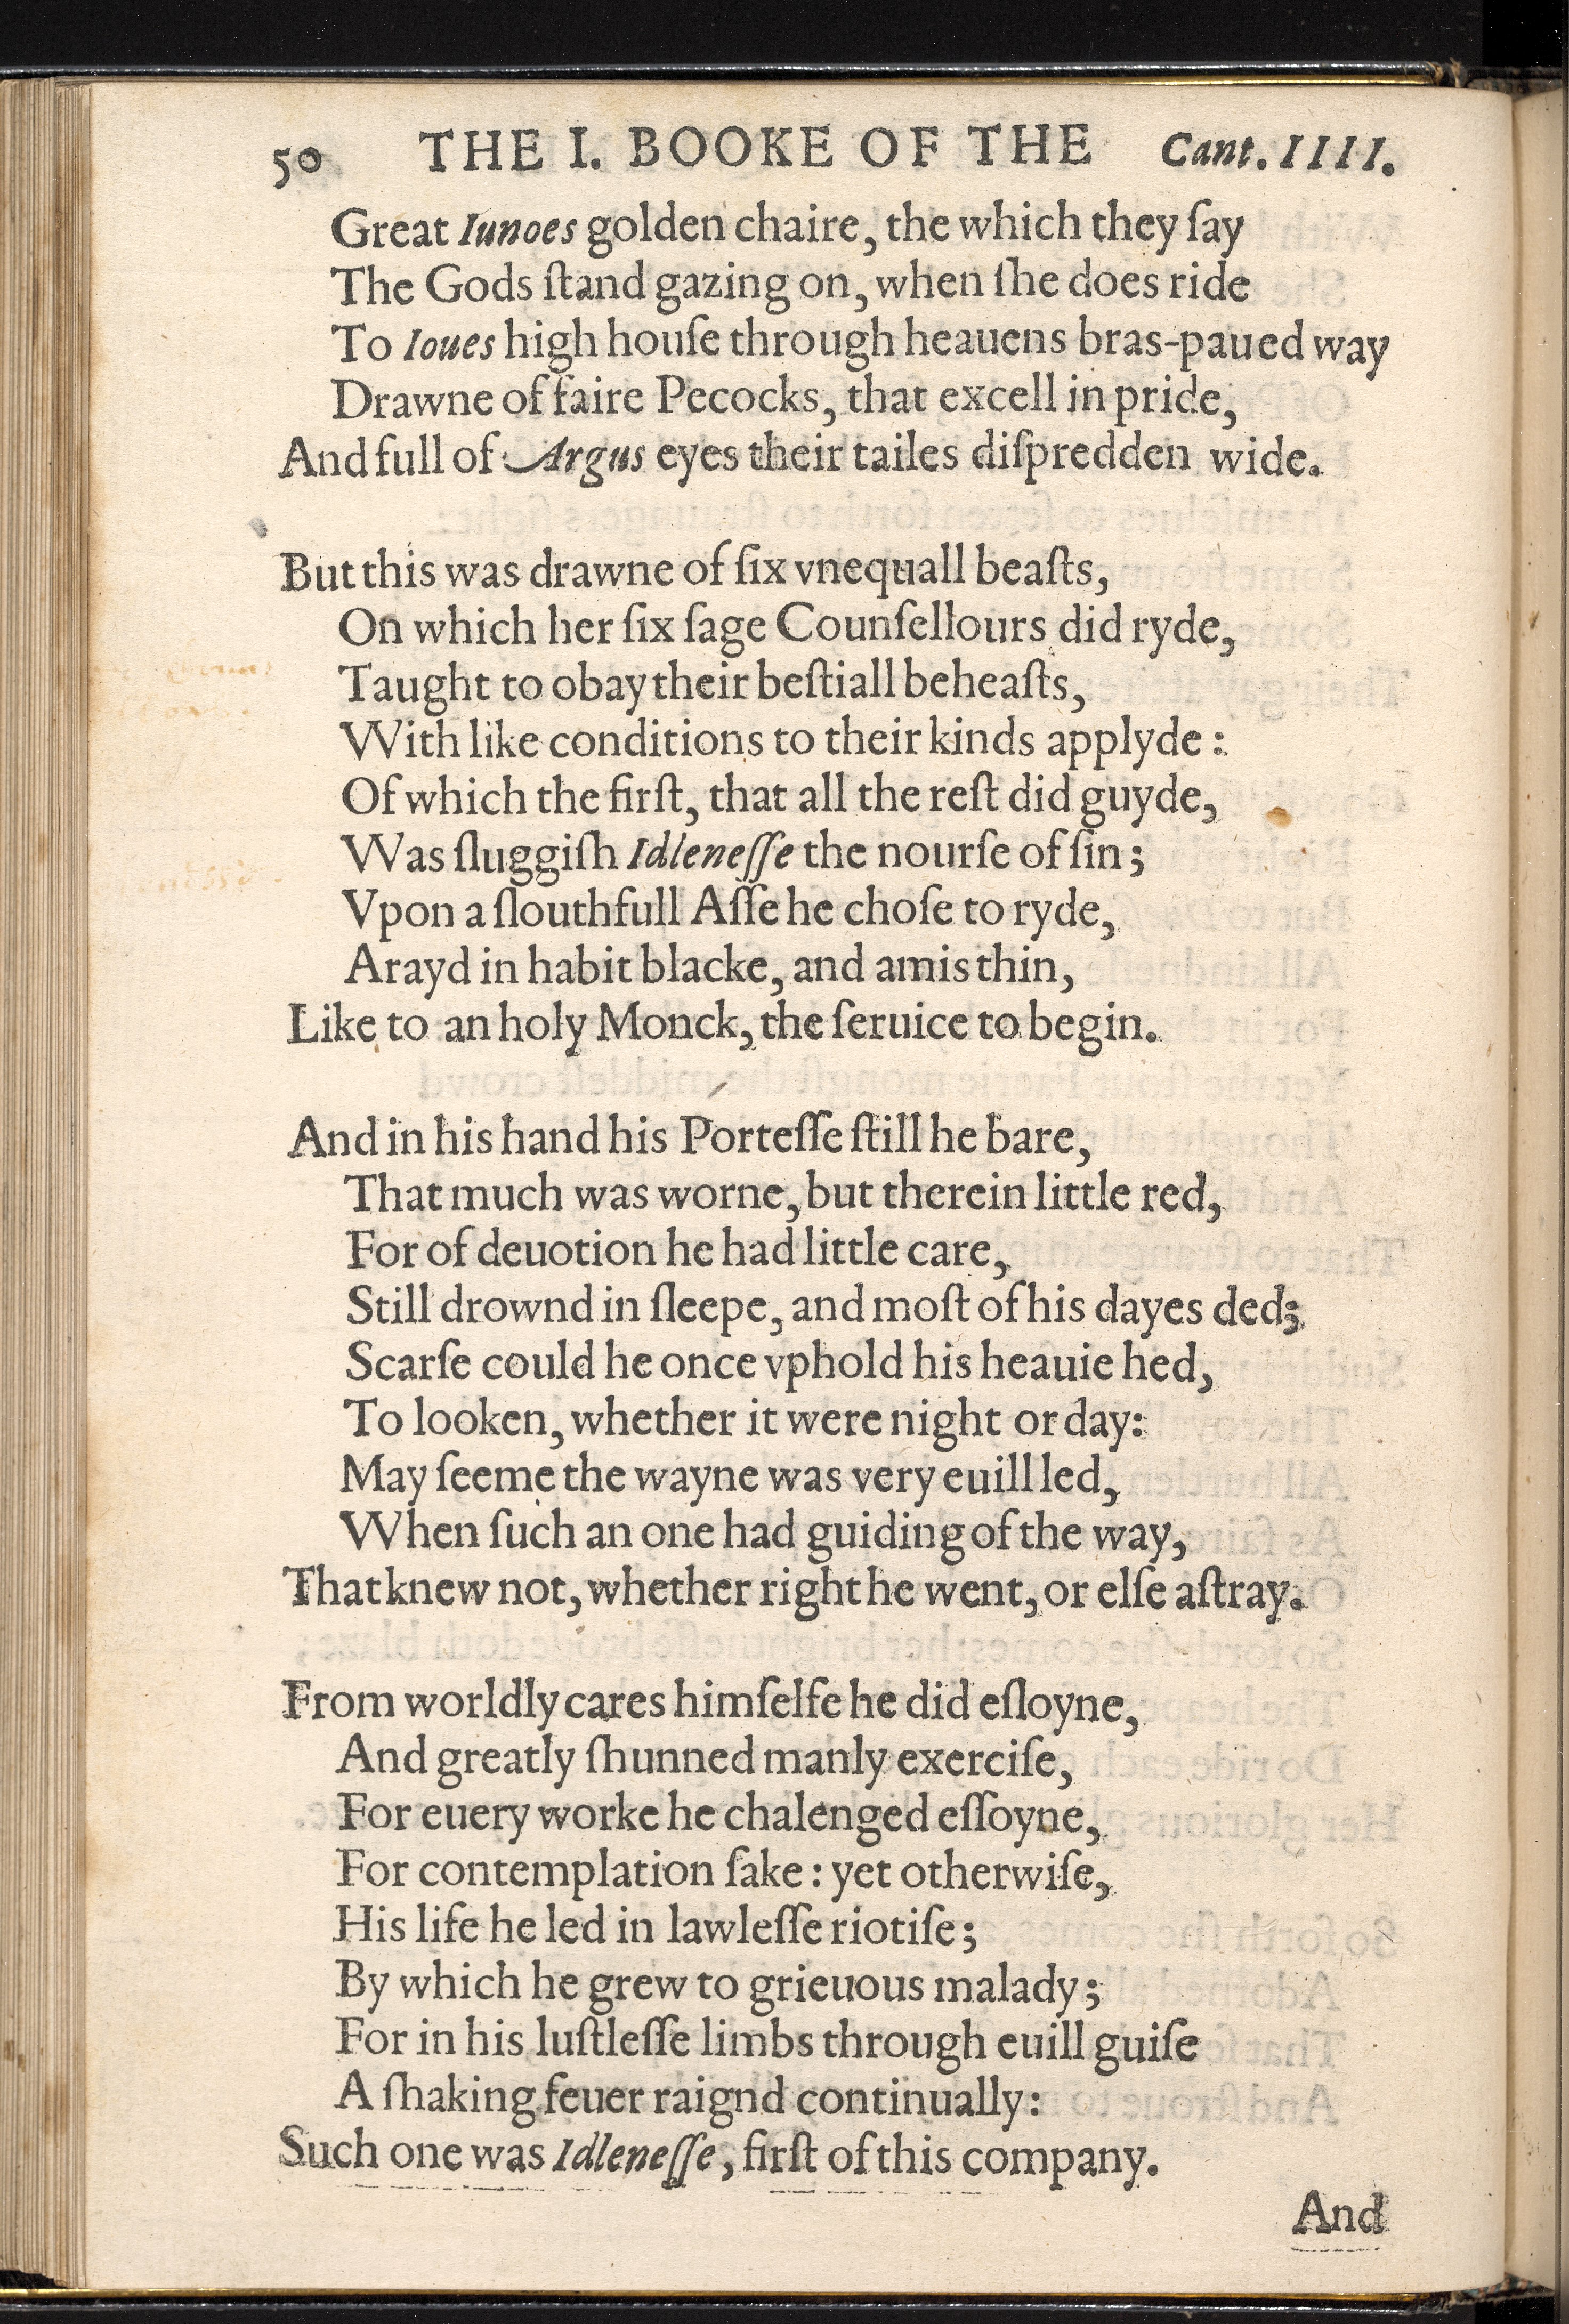 50 THE I. BOOKE OF THE Cant. IIII.
Great Iunoes golden chaire, the which they ſay
The Gods ſtand gazing on, when ſhe does ride
To Ioues high houſe through heauens bras-paued way
Drawne of faire Pecocks, that excell in pride,
And full of Argus eyes their tailes diſpredden wide.
But this was drawne of ſix vnequall beaſts,
On which her ſix ſage Counſellours did ryde,
Taught to obay their beſtiall beheaſts,
With like conditions to their kinds applyde:
Of which the firſt, that all the reſt did guyde,
Was ſluggiſh Idleneſſe the nourſe of ſin;
Vpon a ſlouthfull Aſſe he choſe to ryde,
Arayd in habit blacke, and amis thin,
Like to an holy Monck, the ſeruice to begin.
And in his hand his Porteſſe ſtill he bare,
That much was worne, but therein little red,
For of deuotion he had little care,
Still drownd in ſleepe, and moſt of his dayes ded;
Scarſe could he once vphold his heauie hed,
To looken, whether it were night or day:
May ſeeme the wayne was very euill led,
When ſuch an one had guiding of the way,
That knew not, whether right he went, or elſe aſtray.
From worldly cares himſelfe he did eſloyne,
And greatly ſhunned manly exerciſe,
For euery worke he chalenged eſſoyne,
For contemplation ſake: yet otherwiſe,
His life he led in lawleſſe riotiſe;
By which he grew to grieuous malady;
For in his luſtleſſe limbs through euill guiſe
A ſhaking feuer raignd continually:
Such one was Idleneſſe, firſt of this company.
And